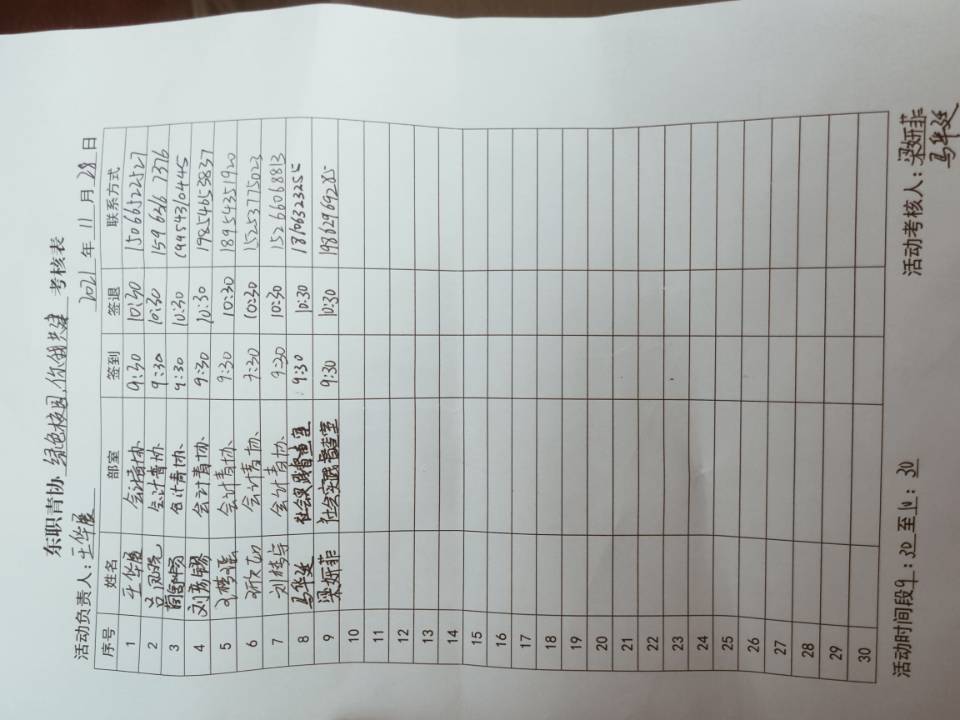 东职青协 绿色校园,你我共建 考核表
活动负责人:王华展 2021 年 11 月 28 日
序号 姓名 部室 签到 签退 联系方式
1 王华展 会计青协 9:30 10:30 15066522527
2 会计青协 9:30 10:30 15963667376
3 会计青协 9:30 10:30 19954310445
4 会计青协 9:30 10:30 19854653837
5 会计青协 9:30 10:30 18954351920
6 会计青协 9:30 10:30 15253775023
7 会计青协 9:30 10:30 15266068813
8 马华廷 社会实践督查室 9:30 10:30 18706323255
9 梁妍菲 社会实践督查室 9:30 10:30 19862969285
10
11
12
13
14
15
16
17
18
19
20
21
22
23
24
25
26
27
28
29
30
活动时间段9:30 至10:30 活动考核人:梁妍菲
马华廷